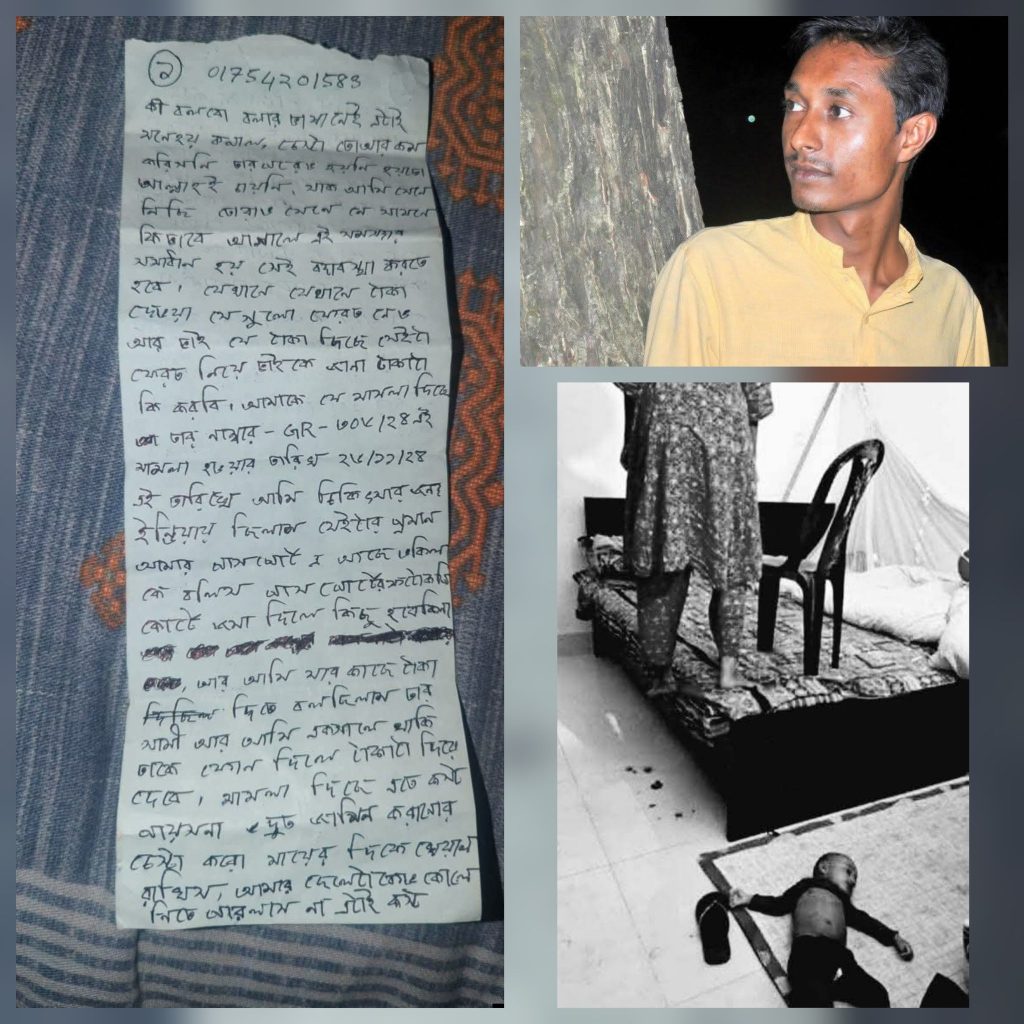 ② 01754201583
কী বলবো বলার ভাষা নেই এটাই
মনেহয় কপাল, চেষ্টা তো আর কম
করিসনি তারপরেও হয়নি হয়তো
আল্লাহই চায়নি, যাক আমি মেনে
নিছি তোরাও মেনে নে সামনে
কিভাবে আগালে এই সমস্যার
সমাধান হয় সেই ব্যবস্থা করতে
হবে, যেখানে যেখানে টাকা
দেওয়া সেগুলো ফেরত নেও
আর ভাই যে টাকা দিছে সেইটা
ফেরত নিয়ে ভাইকে জানা টাকাটা
কি করবি, আমাকে যে মামলা দিছে
তার নাম্বার - GR - ৩০৮/২৪ এই
মামলা হওয়ার তারিখ ২৮/১১/২৪
এই তারিখে আমি চিকিৎসার জন্য
ইন্ডিয়ায় ছিলাম সেইটার প্রমান
আমার পাসপোর্ট এ আছে উকিল
কে বলিস পাসপোর্টের ফটোকপি
কোর্টে জমা দিলে কিছু হবে কিনা
, আর আমি যার কাছে টাকা
দিতে বলছিলাম তার
সামী আর আমি একসাথে থাকি
তাকে ফোন দিলে টাকাটা দিয়ে
দেবে, মামলা দিছে এতে কষ্ট
পায়সনা দ্রুত জামিন করানোর
চেস্টা করো মায়ের দিকে খেয়াল
রাখিস, আমার ছেলেটাকেও কোলে
নিতে পারলাম না এটাই কষ্ট